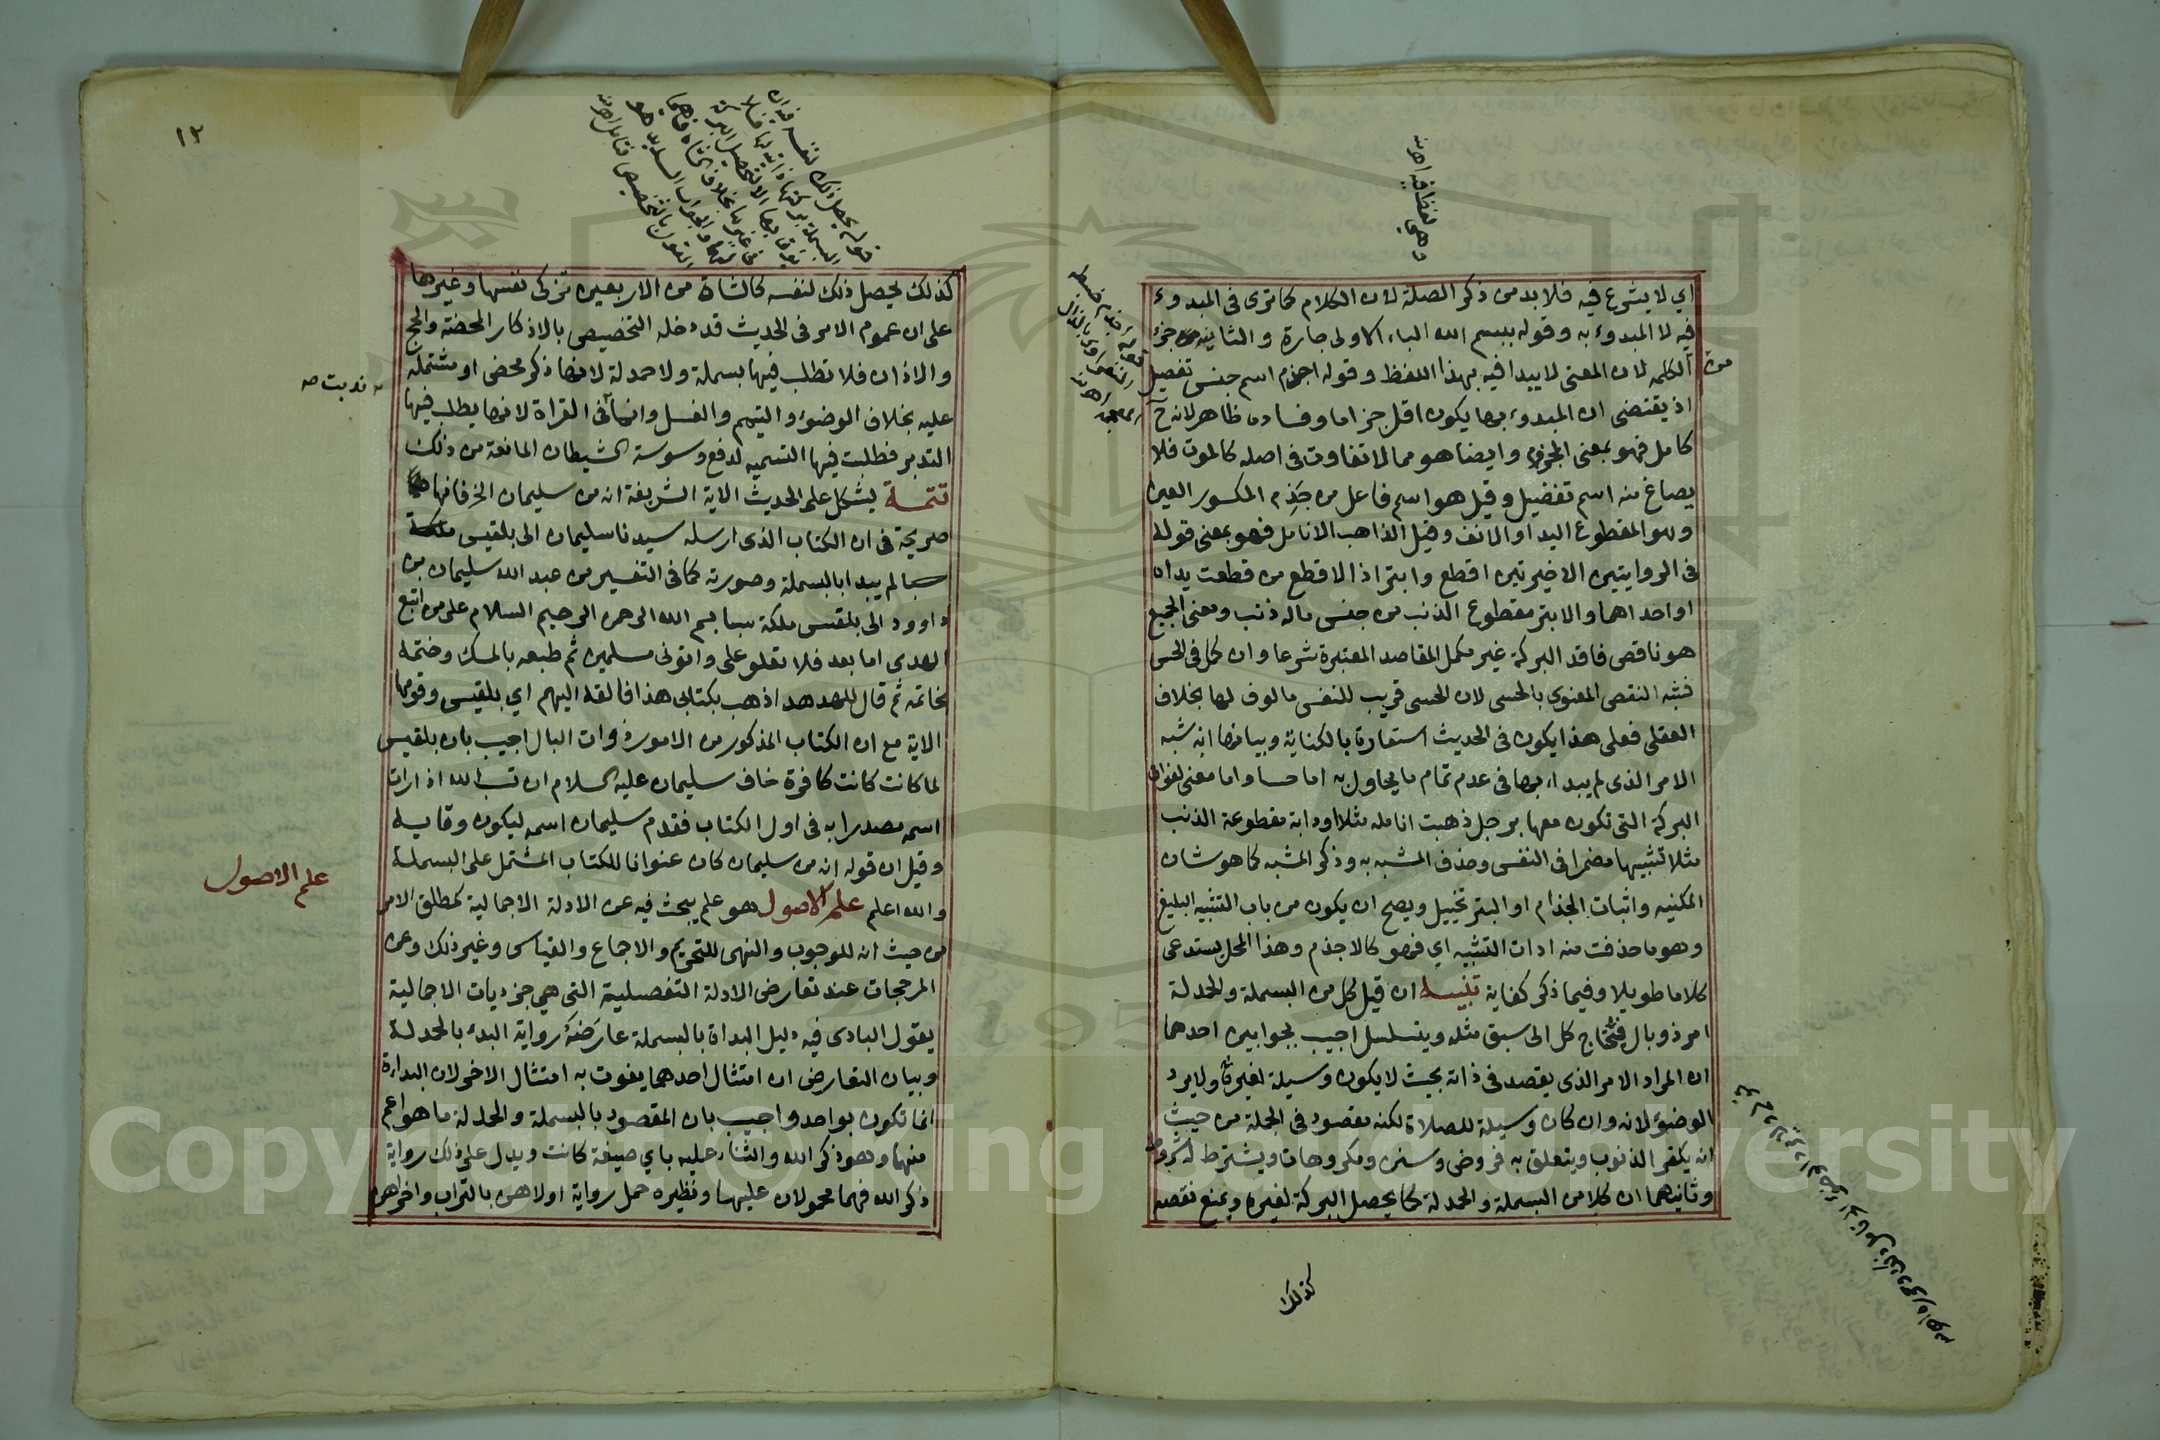 اي لا يشرع فيه فلا بد من ذكر الصلة لان الكلام كما ترى في المبدوء
فيه لا المبدوء به وقوله ببسم الله الباء الاولى جارة والثانية جزء
من الكلمه لان المعنى لا يبدا فيه بهذا اللفظ وقوله اجذم اسم جنس تفضيل
اذ يقتضي ان المبدوء بها يكون اقل جزاما وفساده ظاهر لانه ح
كامل فهو بمعنى وايضا هو مما لا تفاوت في اصله كالموت فلا
يصاغ منه اسم تفضيل وقيل هو اسم فاعل من جَذِم المكسور العين
وهو المقطوع اليد او الانف وقيل الذاهب الانامل فهو بمعنى قوله
في الروايتين الاخيرتين اقطع وابتر اذ الاقطع من قطعت يداه
او احداهما والابتر مقطوع الذنب من جنس ماله ذنب ومعنى الجميع
هو ناقص فاقد البركة غير مكمل المقاصد المعتبرة شرعا وان كمل في الحس
فشبه النقص المعنوي بالحسي لان الحسي قريب للنفس مالوف لها بخلاف
العقلي فعلى هذا يكون في الحديث استعارة بالكناية وبيانها انه شبه
الامر الذي لم يبدا بها في عدم تمام ما يحاول به اما حسا واما معنى لفوات
البركة التي تكون معها برجل ذهبت انامله مثلا او دابة مقطوعة الذنب
مثلا تشبيها مضمرا في النفس وحذف المشبه به وذكر المشبه كما هو شان
المكنيه واثبات الجذام او البتر تخييل ويصح ان يكون من باب التشبيه البليغ
وهو ما حذفت منه ادات التشبيه اي فهو كالاجذم وهذا المحل يستدعى
كلاما طويلا وفيما ذكر كفاية تنبيه ان قيل كل من البسملة والحمدلة
امر ذو بال فيحتاج كل الى سبق مثله ويتسلسل اجيب بجوابين احدهما
ان المراد الامر الذي يقصد في ذاته بحيث لا يكون وسيلة لغيره ولا يرد
الوضؤ لانه وان كان وسيلة للصلاة لكنه مقصود في الجملة من حيث
انه يكفر الذنوب ويتعلق به فروض وسنن ومكروهات ويشترط له
وثانيهما ان كلا من البسملة والحمدلة كما يحصل البركة لغيره ويمنع نقصه
كذلك
١٢
كذلك يحصل ذلك لنفسه كالشاة من الاربعين تزكى نفسها وغيرها
على ان عموم الامر في الحديث قد دخله التخصيص بالاذكار المحضة والحج
والاذان فلا تطلب فيها بسملة ولا حمدلة لانها ذكر محض او مشتملة
عليه بخلاف الوضؤ والتيمم والغسل وانما في القراة لانها يطلب فيها
ندبت صح
التدبر فطلبت فيها التسميه لدفع وسوسة الشيطان المانعة من ذلك
تتمة يشكل على الحديث الاية الشريفة انه من سليمان الخ فانها
صريحة في ان الكتاب الذي ارسله سيدنا سليمان الى بلقيس ملكة
سبا لم يبدا بالبسملة وصورته كما في التفسير من عبد الله سليمان بن
داوود الى بلقيس ملكة سبا بسم الله الرحمن الرحيم السلام على من اتبع
الهدى اما بعد فلا تعلو علي واتوني مسلمين ثم طبعه بالمسك وختمه
بخاتمه ثم قال للهدهد اذهب بكتابي هذا فالقه اليهم اي بلقيس وقومها
الاية مع ان الكتاب المذكور من الامور ذوات البال اجيب بان بلقيس
لما كانت كانت كافرة خاف سليمان عليه السلام ان تسب الله اذ ارات
اسمه مصدرا به في اول الكتاب فقدم سليمان اسمه ليكون وقاية
وقيل ان قوله انه من سليمان كان عنوانا للكتاب المشتمل على البسملة
والله اعلم علم الاصول هو علم يبحث فيه عن الادلة الاجمالية كمطلق الامر
علم الاصول
من حيث انه للوجوب والنهي للتحريم والاجماع والقياس وغير ذلك وعن
المرجحات عند تعارض الادلة التفصيلية التي هي جزءيات الاجمالية
يقول البادى فيه دليل البداة بالبسملة عارضته رواية البدء بالحمدلة
وبيان التعارض ان امتثال احدهما يفوت به امتثال الاخر لان البداءة
انما تكون بواحد واجيب بان المقصود بالبسملة والحمدلة ما هو اعم
منهما وهو ذكر الله والثناء عليه باي صيغة كانت ويدل على ذلك رواية
ذكر الله فهما محمولان عليها ونظيره حمل رواية اولاهن بالتراب واخراهن
Copyright © King Saud University
1957